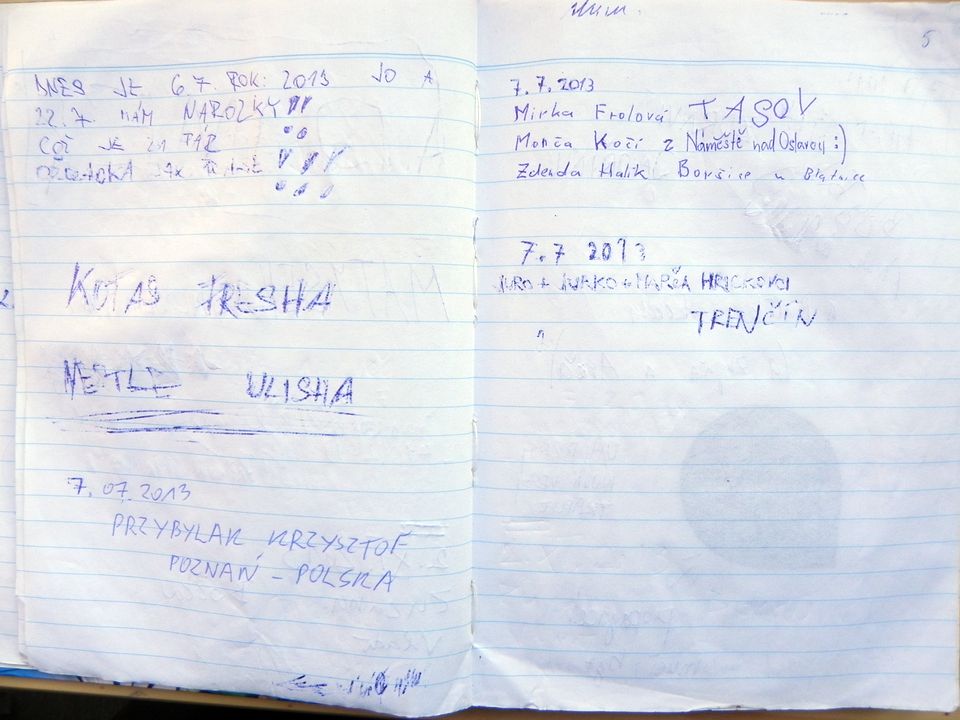 DNES JE 6.7. ROK: 2013 JO A
22.7. MÁM NAROZKY!!
COŽ JE ZA
7.07.2013
PRZYBYLAK KRZYSZTOF
POZNAŃ - POLSKA
KOTAS FRESHA
NESTLE ULISHA
5
7.7.2013
Mirka Frolová TASOV
Monča Kočí z Náměště nad Oslavou :)
Zdenda Malík Boršice u Blatnice
7.7 2013
JURO + JURKO + MARŠA HRICKOVCI
TRENČÍN